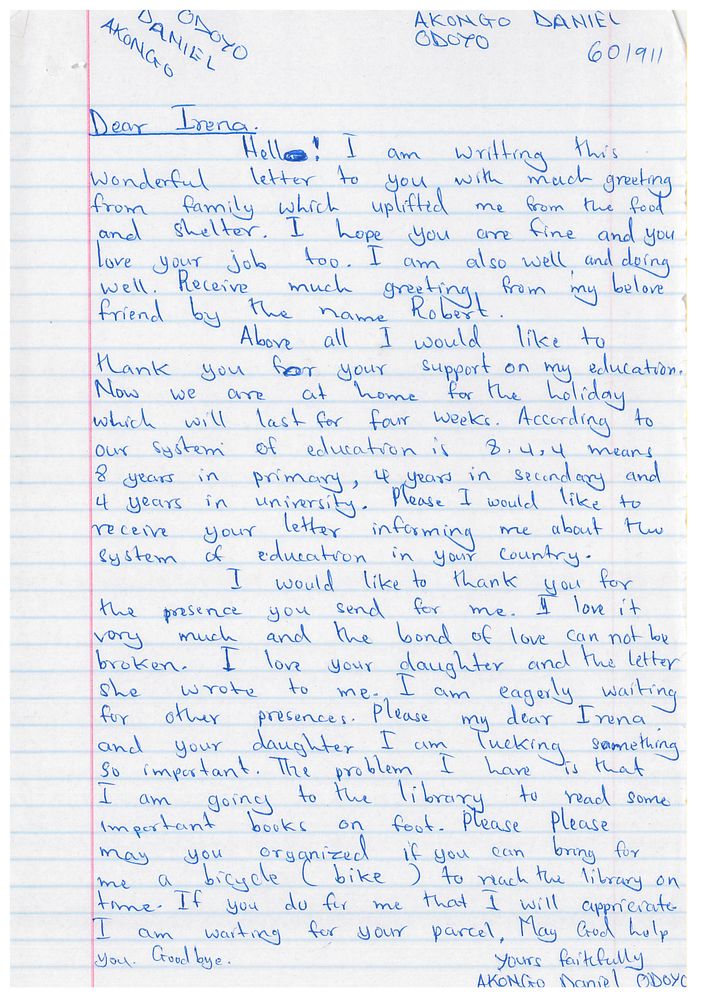 ODOYO
DANIEL
AKONGO
AKONGO DANIEL
ODOYO
601911
Dear Irena.
Hello! I am writting this
wonderful letter to you with much greeting
from family which uplifted me from the food
and shelter. I hope you are fine and you
love your job too. I am also well and doing
well. Receive much greeting from my belove
friend by the name Robert.
Above all I would like to
thank you for your support on my education.
Now we are at home for the holiday
which will last for four weeks. According to
our system of education is 8.4.4 means
8 years in primary, 4 years in secindary and
4 years in university. Please I would like to
receive your letter informing me about the
system of education in your country.
I would like to thank you for
the presence you send for me. I love it
vory much and the bond of love can not be
broken. I love your daughter and the letter
she wrote to me. I am eagerly waiting
for other presences. Please my dear Irena
and your daughter I am lucking something
so important. The problem I have is that
I am going to the library to read some
important books on foot. Please Please
may you organized if you can bring for
me a bicycle ( bike ) to reach the library on
time. If you do for me that I will appriciate.
I am waiting for your parcel, May God help
you. Goodbye. Yours faithfully
AKONGO Daniel ODOYO